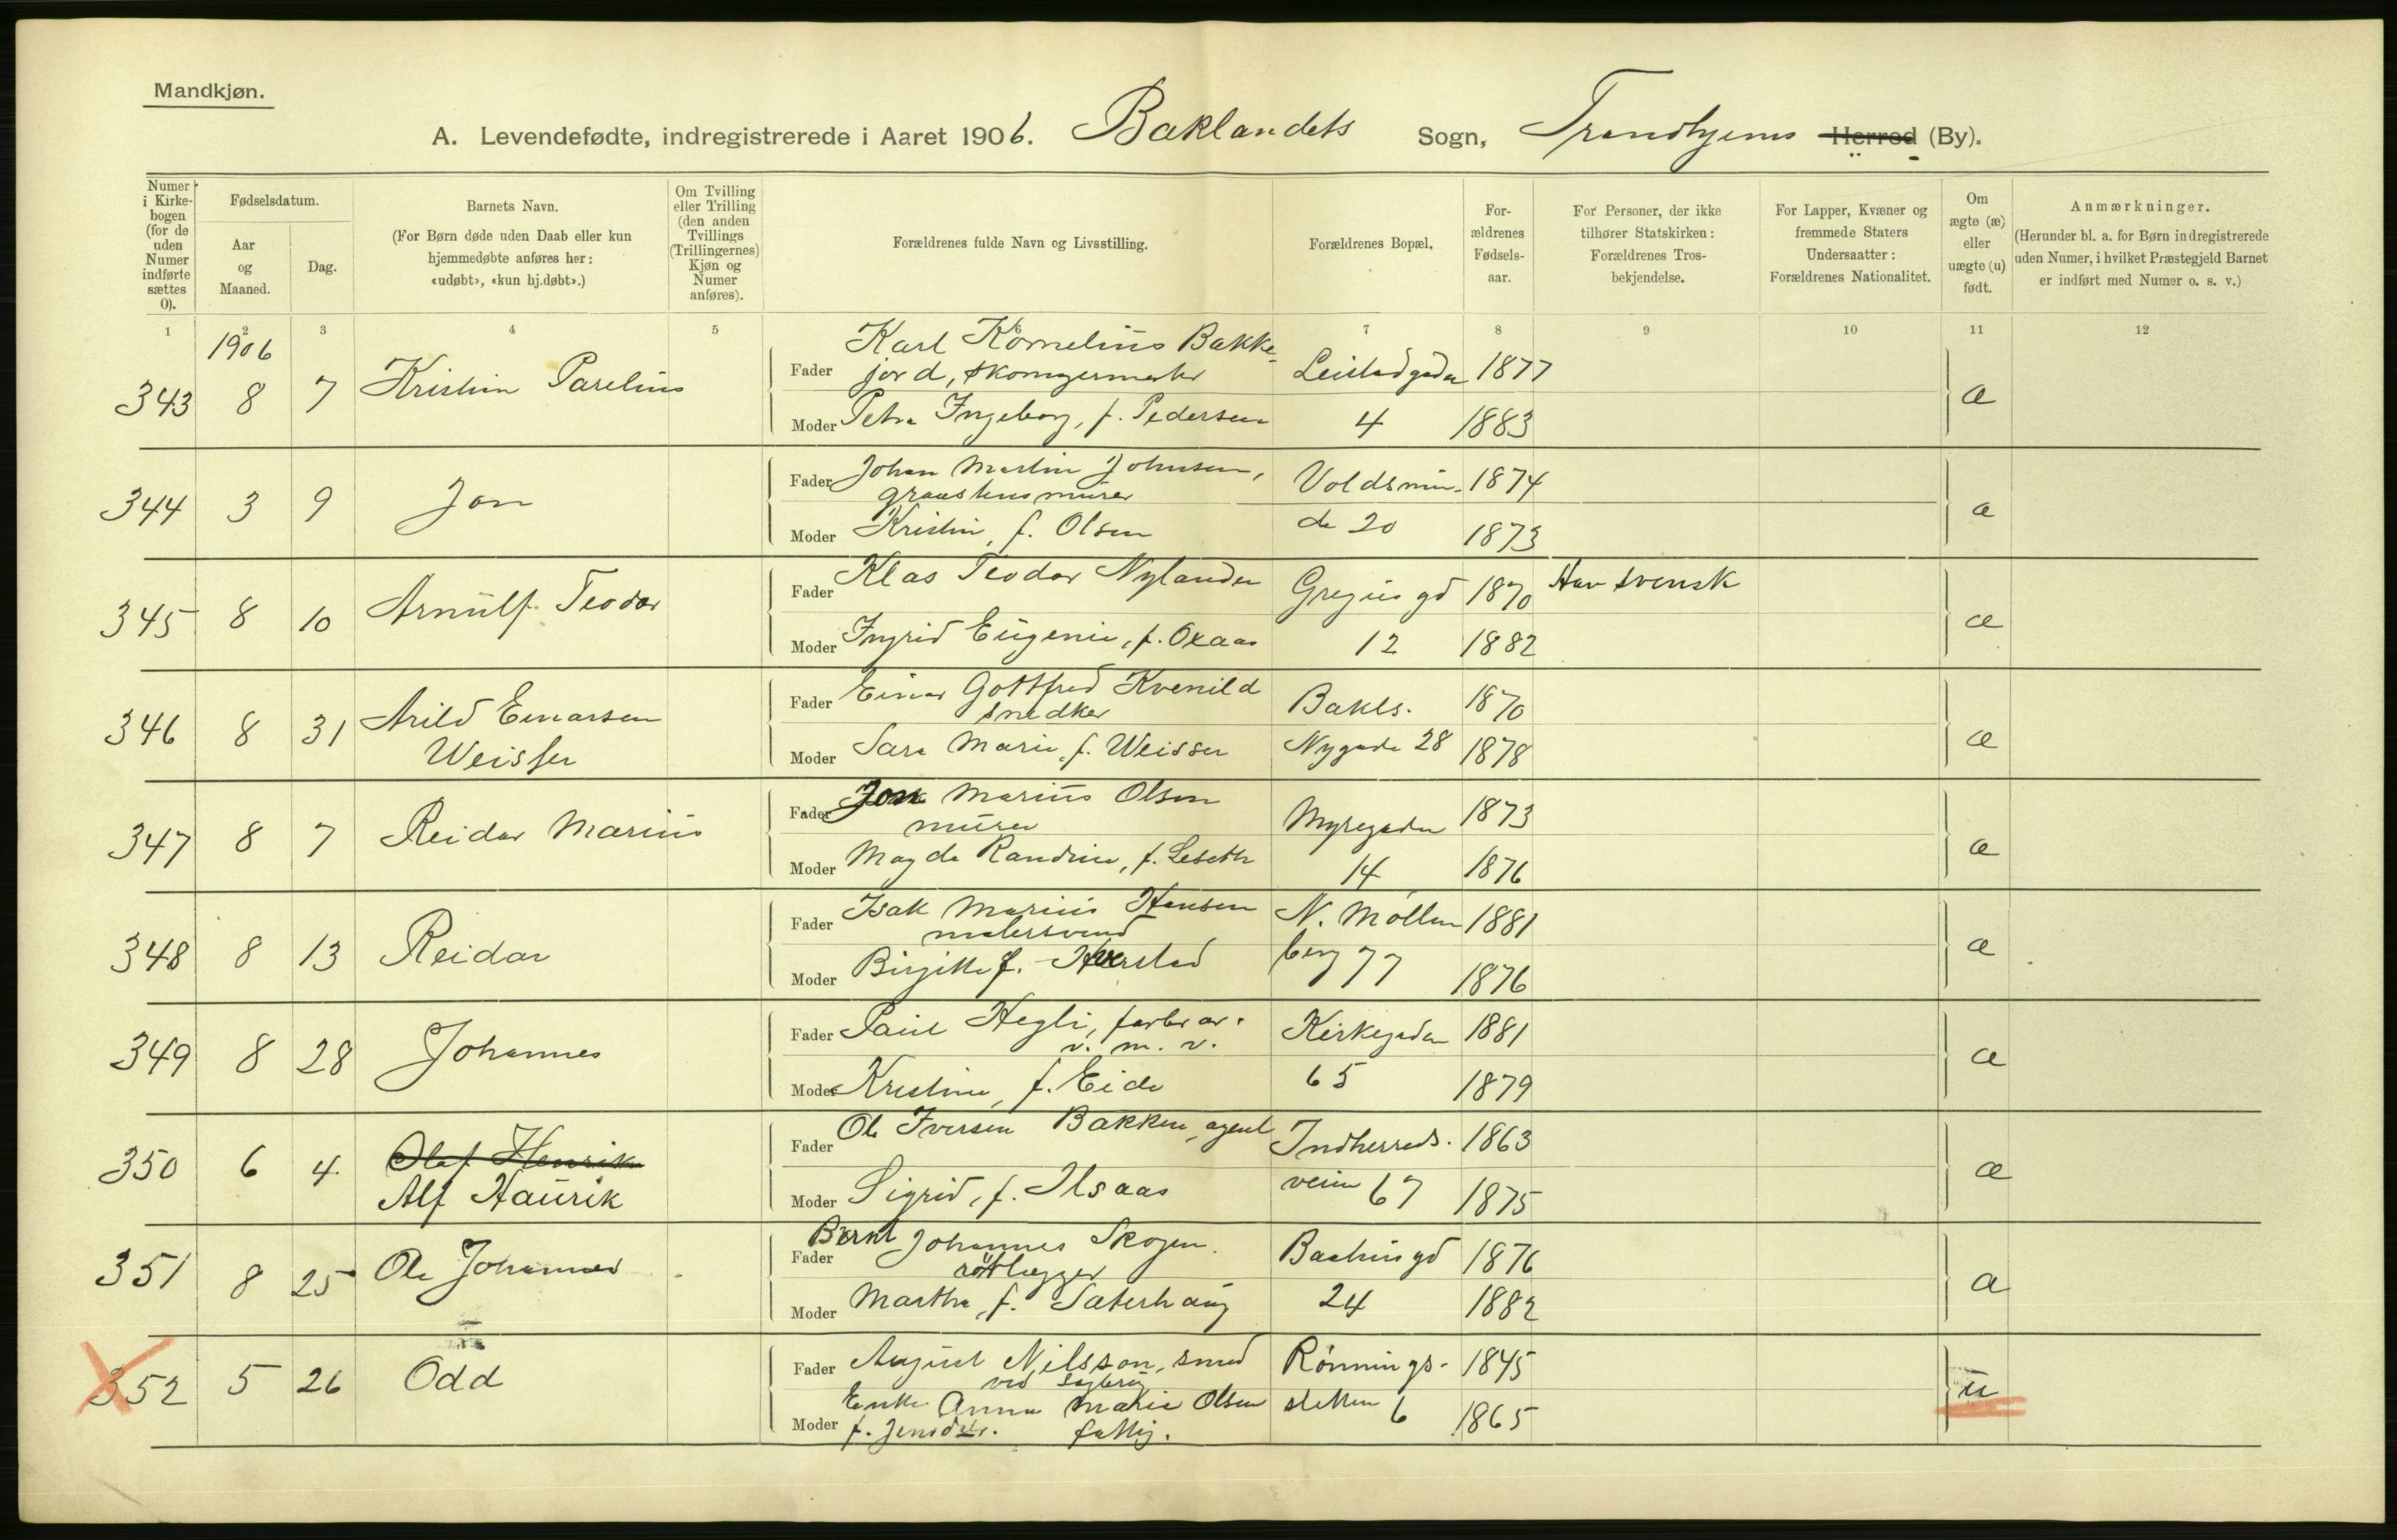 Mandkjøn.
A. Levendefødte, indregistrerede i Aaret 1906. Baklandets Sogn, Trondhjems Herred (By).
Numer i Kirkebogen (for de uden Numer indførte sættes 0).
Fødselsdatum.
Aar og Maaned.
Dag.
Barnets Navn.
(For Børn døde uden Daab eller kun hjemmedøbte anføres her: «udøbt», «kun hj.døbt».)
Om Tvilling eller Trilling (den anden Tvillings (Trillingernes) Kjøn og Numer anføres).
Forældrenes fulde Navn og Livsstilling.
Forældrenes Bopæl,
Forældrenes Fødselsaar.
For Personer, der ikke tilhører Statskirken: Forældrenes Trosbekjendelse.
For Lapper, Kvæner og fremmede Staters Undersaatter: Forældrenes Nationalitet.
Om ægte (æ) eller uægte (u) født.
Anmærkninger.
(Herunder bl. a. for Børn indregistrerede uden Numer, i hvilket Præstegjeld Barnet er indført med Numer o. s. v.)
1 2 3 4 5 6 7 8 9 10 11 12
1906
343 8 7 Kristian Parelius
Fader Karl Kornelius Bakkejord, skomagermester Leistadgaden 1877
Moder Petra Ingeborg, f. Pedersen 4 1883
æ
344 3 9 Jon
Fader Johan Martin Johnsen, graastensmurer Voldsmin- 1874
Moder Kristin, f. Olsen de 20 1873
æ
345 8 10 Arnulf Teodor
Fader Klas Teodor Nylander Gregus gd 1870 Han svensk
Moder Ingrid Eugenie, f. Oxaas 12 1882
æ
346 8 31 Arild Einarsen Weisser
Fader Einar Gottfred Kvenild snedker Bakls. 1870
Moder Sara Marie, f. Weisser Nygade 28 1878
æ
347 8 7 Reidar Marius
Fader Marius Olsen murer Myregaden 1873
Moder Magda Randine, f. Leseth 14 1876
æ
348 8 13 Reidar
Fader Isak Marius Hansen malersvend N. Møllen 1881
Moder Birgitte f. berg 77 1876
æ
349 8 28 Johannes
Fader Paul Hegli, v. m. v. Kirkegaden 1881
Moder Kristine, f. Eide 65 1879
æ
350 6 4 Olaf Henrik
Alf Haurik
Fader Ole Iversen Bakken, agent Indherreds- 1863
Moder Sigrid, f. Ilsaas veien 67 1875
æ
351 8 25 Ole Johannes
Fader Bernt Johannes Skogen. rørlægger Bachus gd 1876
Moder Martha, f. Saterhaug 24 1882
æ
352 5 26 Odd
Fader August Nilsson, smed ved Rønnings- 1845
Moder Enke Anna Marie Olsen f. Jensdtr. fattig. sletten 6 1865
u